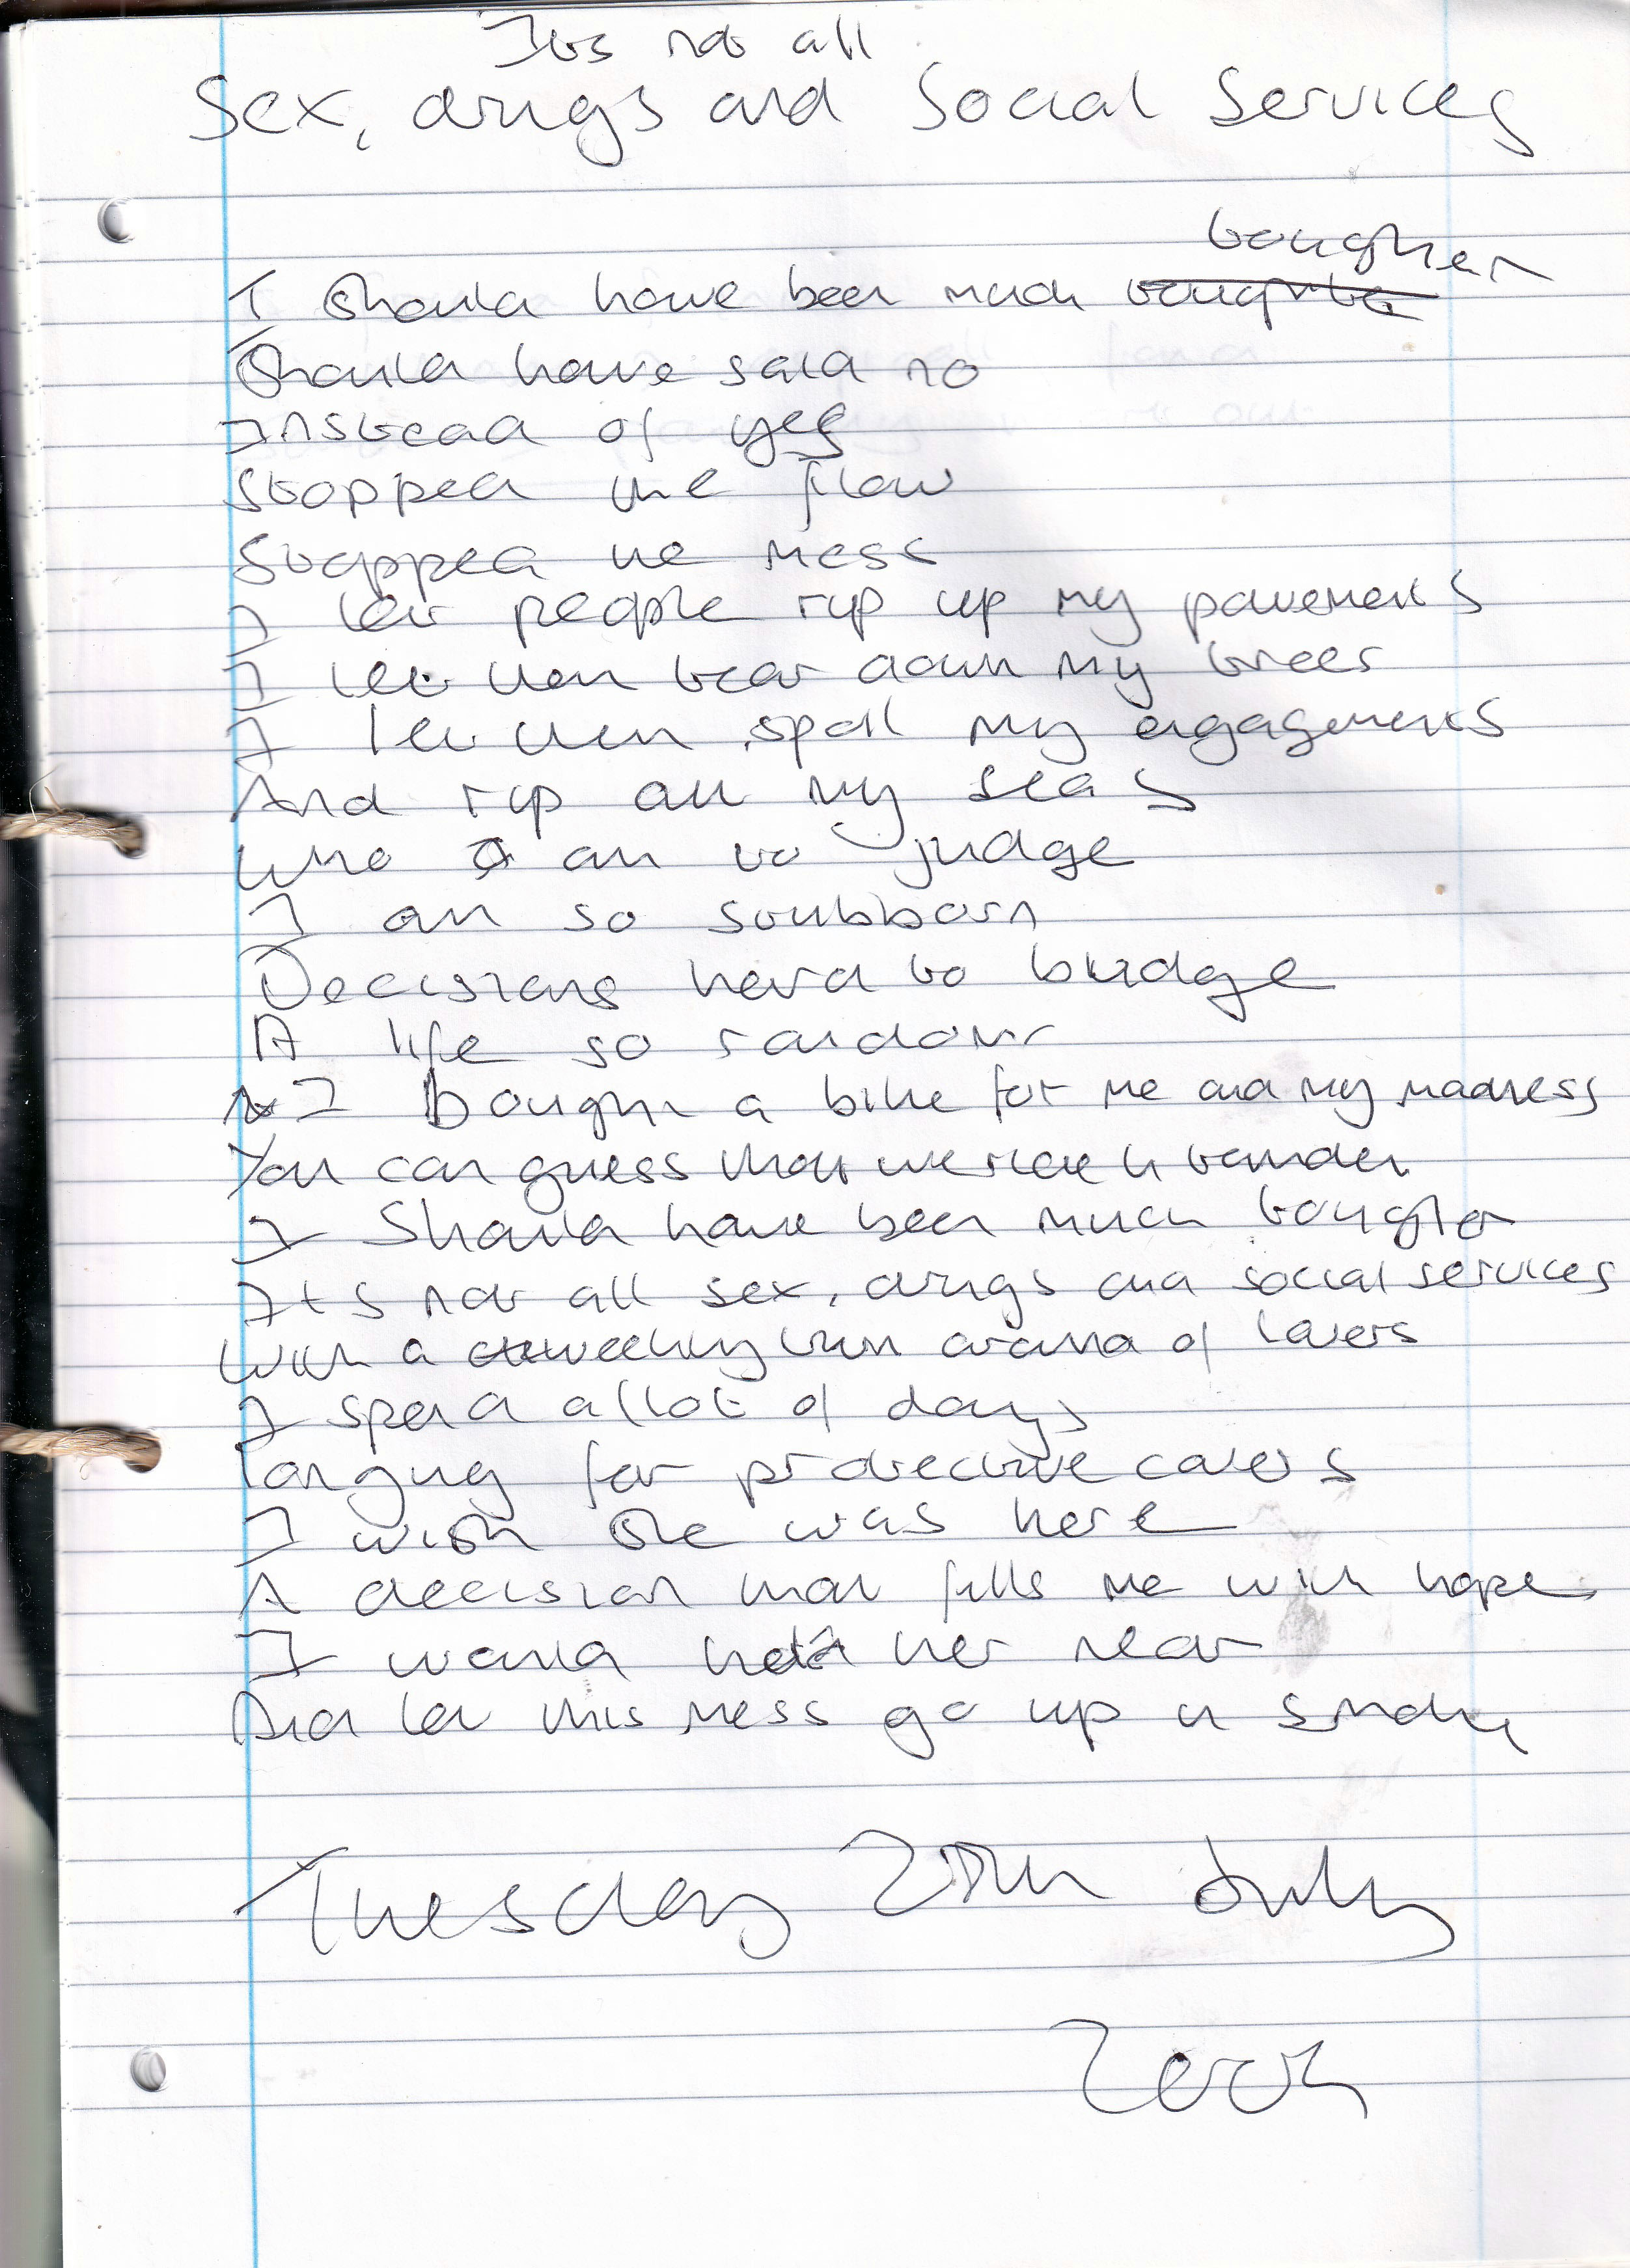 Its not all
Sex, drugs and Social Services
tougher
I should have been much
Should have said no
Instead of yes
Stopped the flow
Stopped the mess
I let people rip up my pavements
I let them tear down my trees
I let them spoil my engagements
And rip all my seas
Who am to judge
I am so stubborn
Decisions hard to budge
A life so random
I Bought a bike for me and my madness
You can guess that we ride in tandem
I Should have been much tougher
Its not all sex, drugs and social services
With a weekly drama of lovers
I spend allot of days
longing for protective covers
I wish she was here
A decision that fills me with hope
I would hold her near
And let this mess go up in smoke
Tuesday July